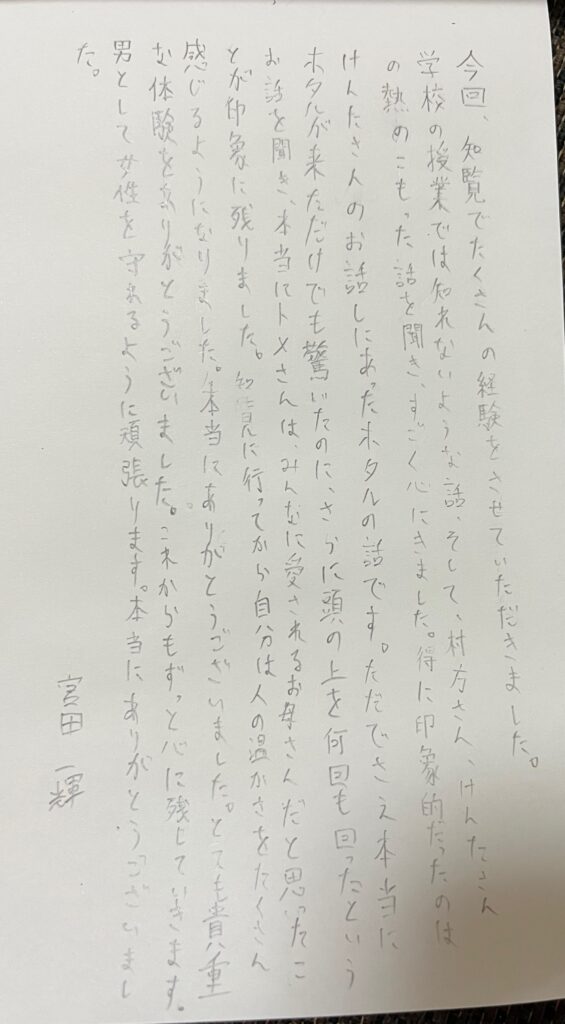 今回、知覧でたくさんの経験をさせていただきました。
学校の授業では知れないような話、そして、村方さん、けんたさん
の熱のこもった話を聞き、すごく心にきました。得に印象的だったのは
けんたさんのお話しにあったホタルの話です。ただでさえ本当に
ホタルが来ただけでも驚いたのに、さらに頭の上を何回も回ったという
お話を聞き、本当にトメさんは、みんなに愛されるお母さんだと思ったこ
とが印象に残りました。知覧に行ってから自分は人の温かさをたくさん
感じるようになりました。本当にありがとうございました。とても貴重
な体験をありがとうございました。これからもずっと心に残していきます。
男として女性を守れるように頑張ります。本当にありがとうございまし
た。
宮田 一輝